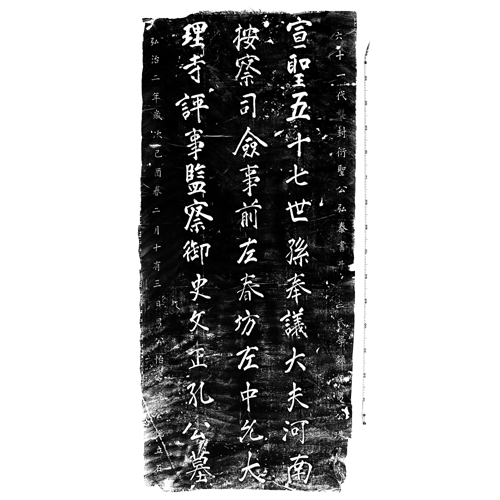 六十一代襲封衍聖公弘泰書
宣聖五十七世孫奉議大夫河南
按察司僉事前左春坊左中允大
理寺評事監察御史文正孔公墓
弘治二年歲次己酉春二月十有三日